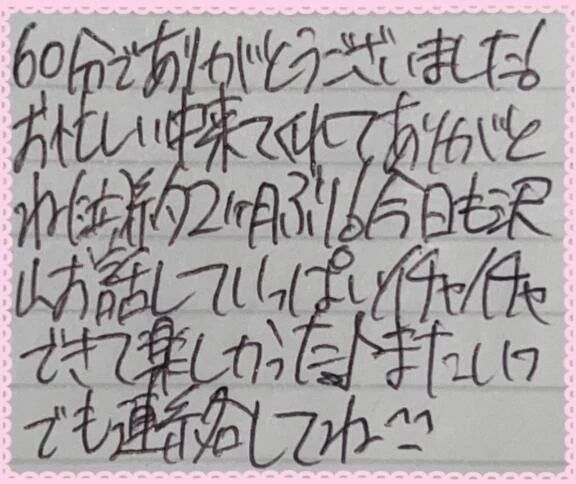 60分でありがとうございました!
お忙しい中来てくれてありがと
ね(泣)約2ヶ月ぶり!今日も沢
山お話していっぱいイチャイチャ
できて楽しかったよ!またいつ
でも連絡してね^^